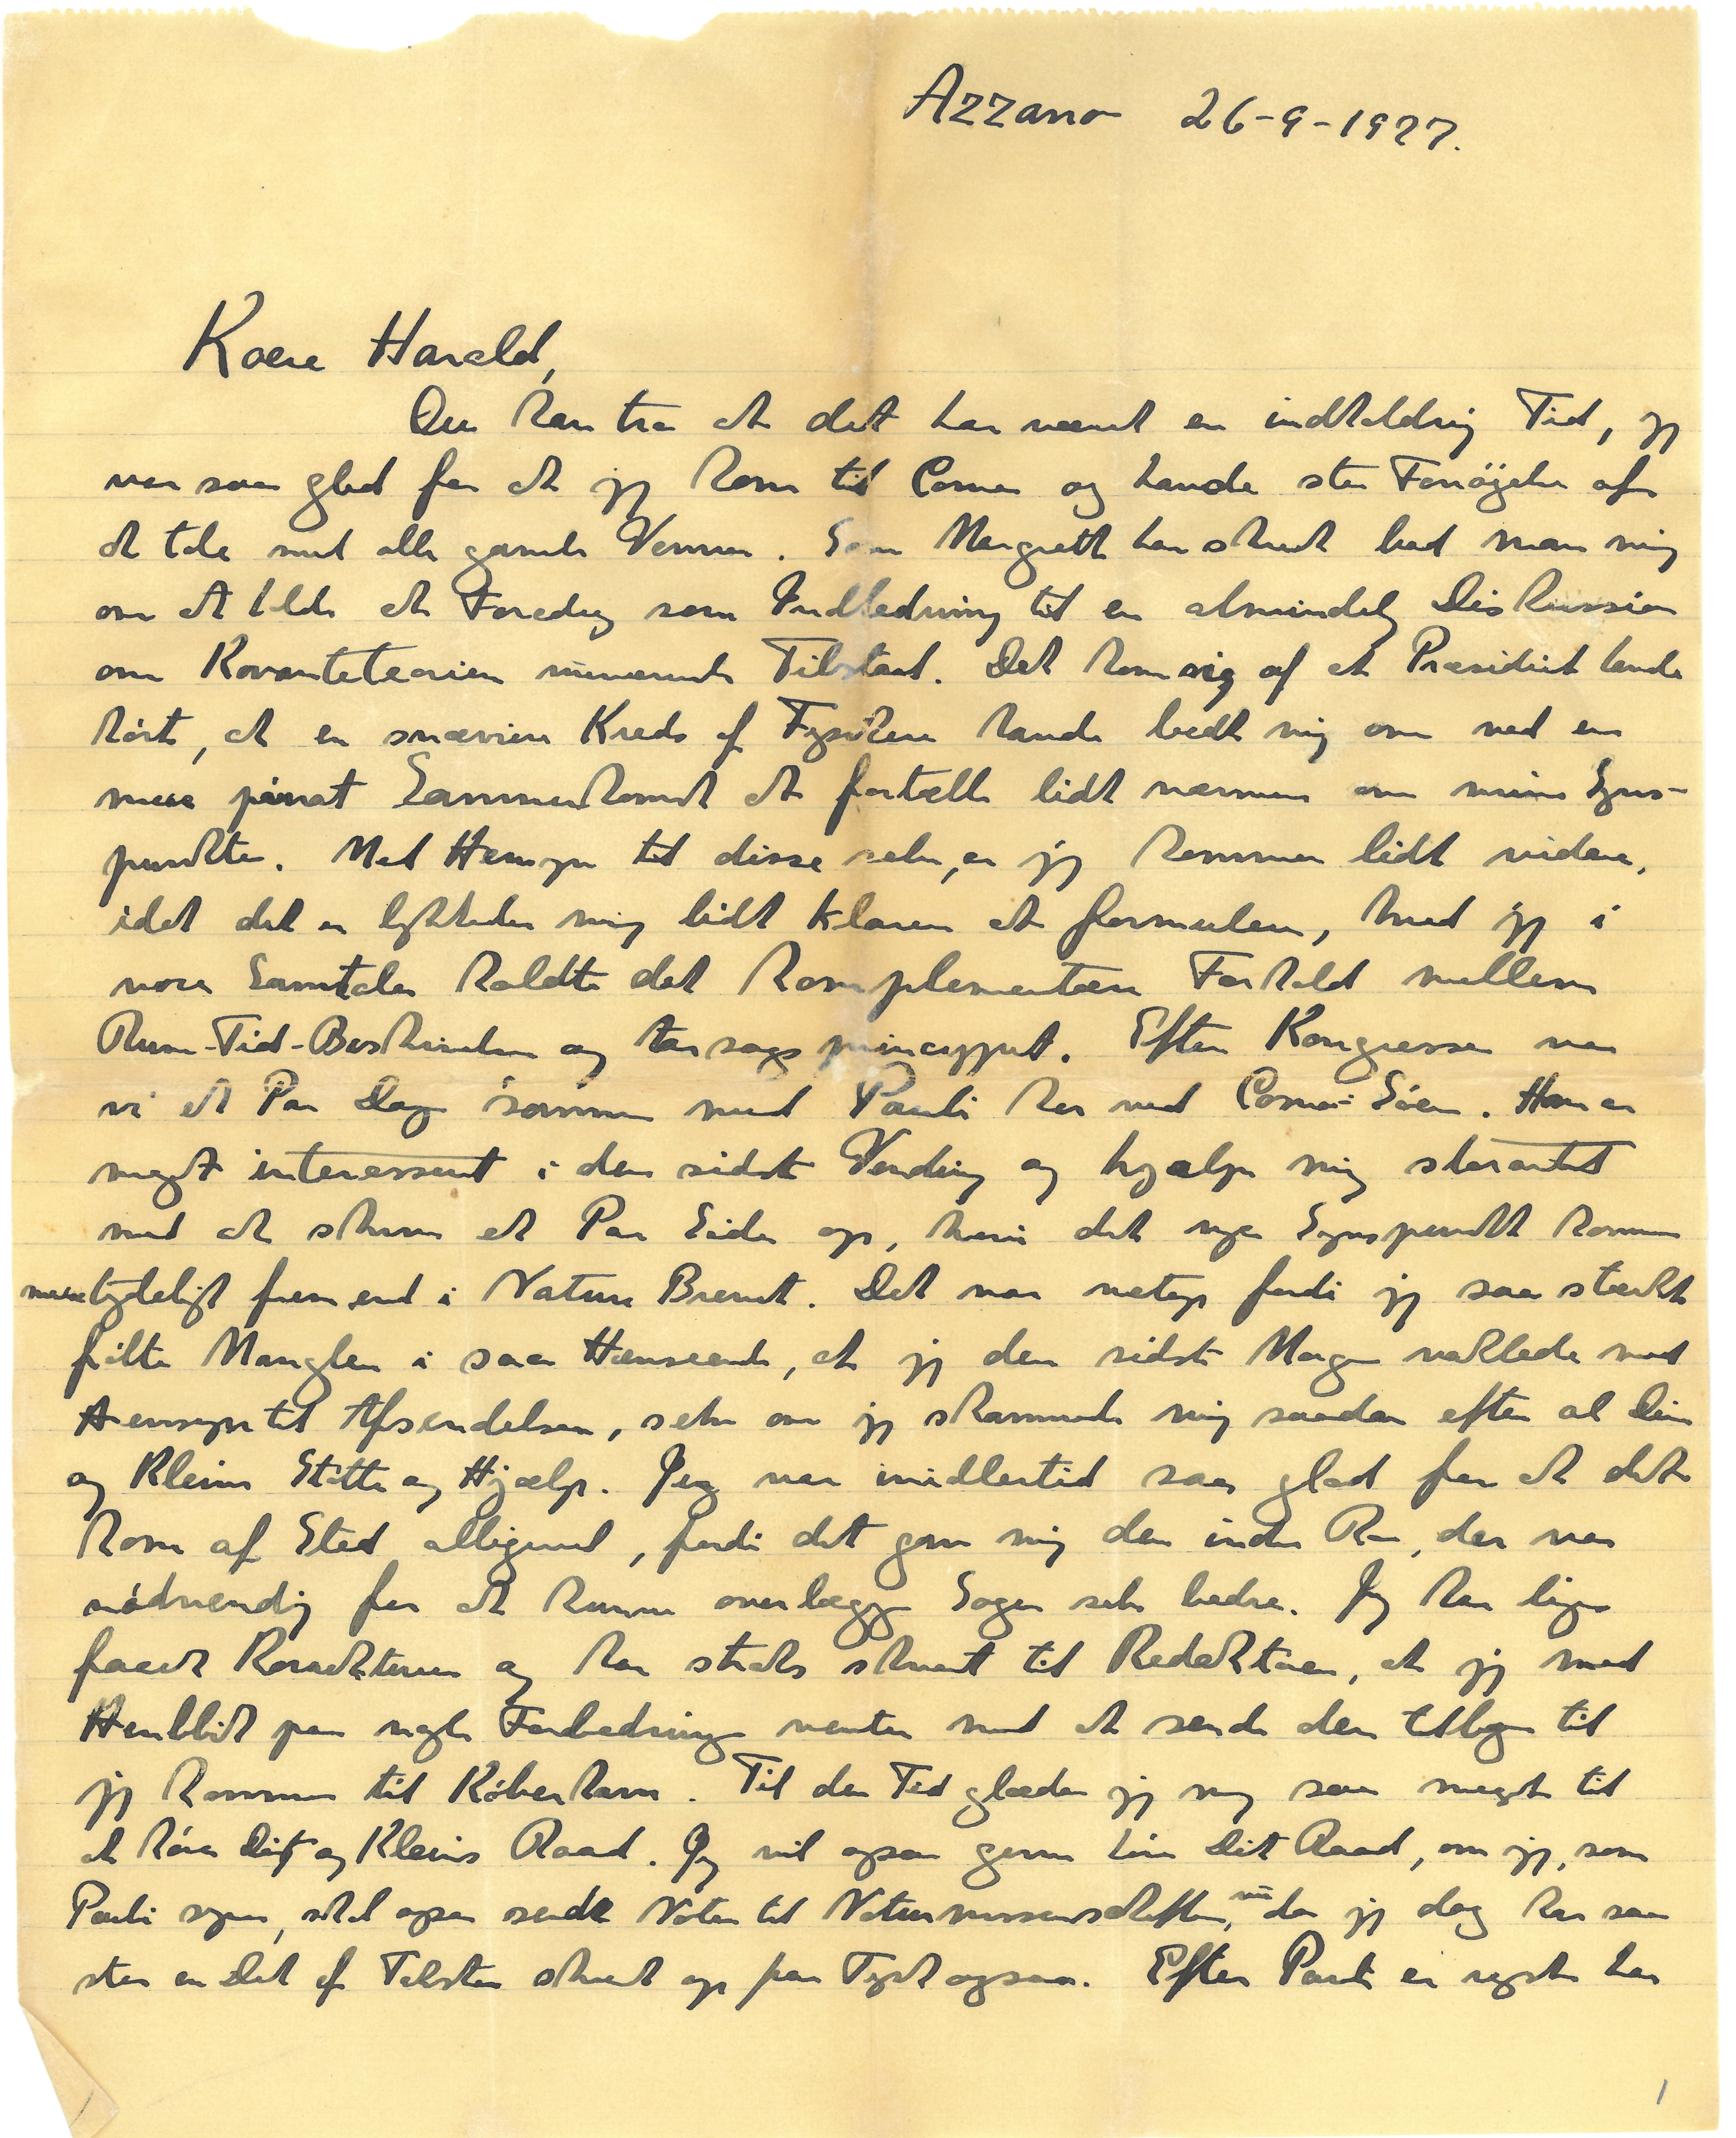 Azzano 26-9-1927.
Kære Harald,
Du kan tro at det har været en indholdrig Tid, jeg
var saa glad for at jeg kom til Como og havde stor Fornøjelse af
at tale med alle gamle Venner. Som Margrethe har skrevet bad man mig
om at holde et Foredrag som Indledning til en almindelig Diskussion
om Kvanteteorien nuværende Tilstand. Det kom sig af at Præsidiet havde
hørt, at en snævrere Kreds af Fysikere havde bedt mig om ved en
mere privat Sammenkomst at fortælle lidt nærmere om mine Syns-
punkter. Med Hensyn til disse selv, er jeg kommen lidt videre,
idet det er lykkedes mig lidt klarere at formulere, hvad jeg i
vore Samtaler kaldte det komplementære Forhold mellem
Rum-Tid-Beskrivelsen og Aarsagsprincippet. Efter Kongressen var
vi et Par Dage sammen med Pauli her ved Como-Søen. Han er
meget interesseret i den sidste Vending og hjælper mig storartet
med at skrive et Par Sider op, hvori det nye Synspunkt kommer
mere tydeligt frem end i Nature Brevet. Det var netop fordi jeg saa stærkt
følte Manglen i saa Henseende, at jeg den sidste Morgen vaklede med
Hensyn til Afsendelsen, selv om jeg skammede mig saadan efter al Din
og Kleins Støtte og Hjælp. Jeg var imidlertid saa glad for at det
kom af Sted alligevel, fordi det gav mig den indre Ro, der var
nødvendig for at kunne overlægge Sagen selv bedre. Jeg har lige
faaet Korrekturen og har straks skrevet til Redaktøren, at jeg med
Henblik paa nogle Forbedringer venter med at sende den tilbage til
jeg kommer til København. Til den Tid glæder jeg mig saa meget til
at høre Dit og Kleins Raad. Jeg vil ogsaa gerne høre Dit Raad, om jeg, som
Pauli synes, skal ogsaa sende Noten til Naturwissenschaften, nu da jeg dog har saa
stor en Del af Teksten skrevet op paa Tysk ogsaa. Efter Pauli er rejst har
1